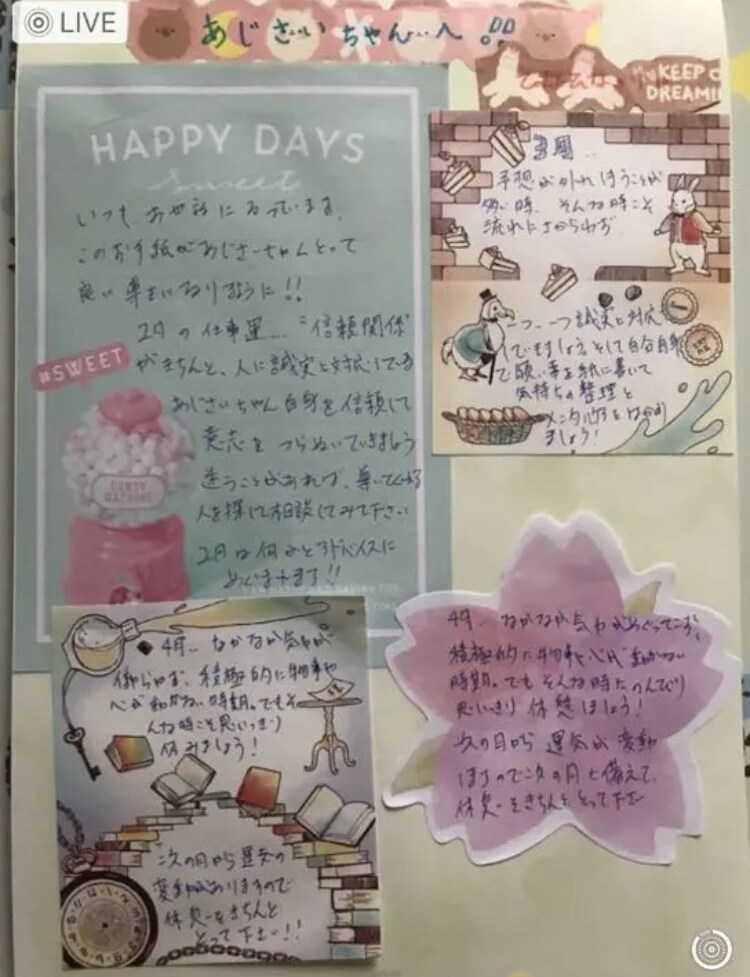 LIVE
あじさいちゃんへ!!
KEEP
DREAMI
HAPPY DAYS
sweet
いつもお世話になっています。
このお手紙があじさいちゃんとって
良い事をいのりますように!!
2月の仕事運… "信頼関係"
がきちんと、人に誠実と対応している
あじさいちゃん自身を信頼して
意志をつらぬいていきましょう
迷うことがあれば、導いてくれる
人を探して相談してみて下さい
2月は何かとアドバイスに
めぐまれます!!
#SWEET
CANDY
MACHINE
3月..
予想が外れほうことが
多い時、そんな時こそ
流れにさからわず
一つ、一つ誠実と対応
していきましょう。そして自分自身
で願い事を紙に書いて
気持ちの整理と
メンタルケアをはかり
ましょう!
4月.. なかなか気力が
御らやず、積極的に物事や
心が動かない時期。でもそ
んな時こそ思いっきり
休みましょう!
次の月から運気の
変動がありますので
休息をきちんと
とって下さい!!
4月.. なかなか気力がめぐってこず、
積極的に物事や心が動かない
時期。でもそんな時こそのんびり
思いきり休憩しましょう!
次の月から運気が変動
しますので次の月と備えて、
休息をきちんととって下さい